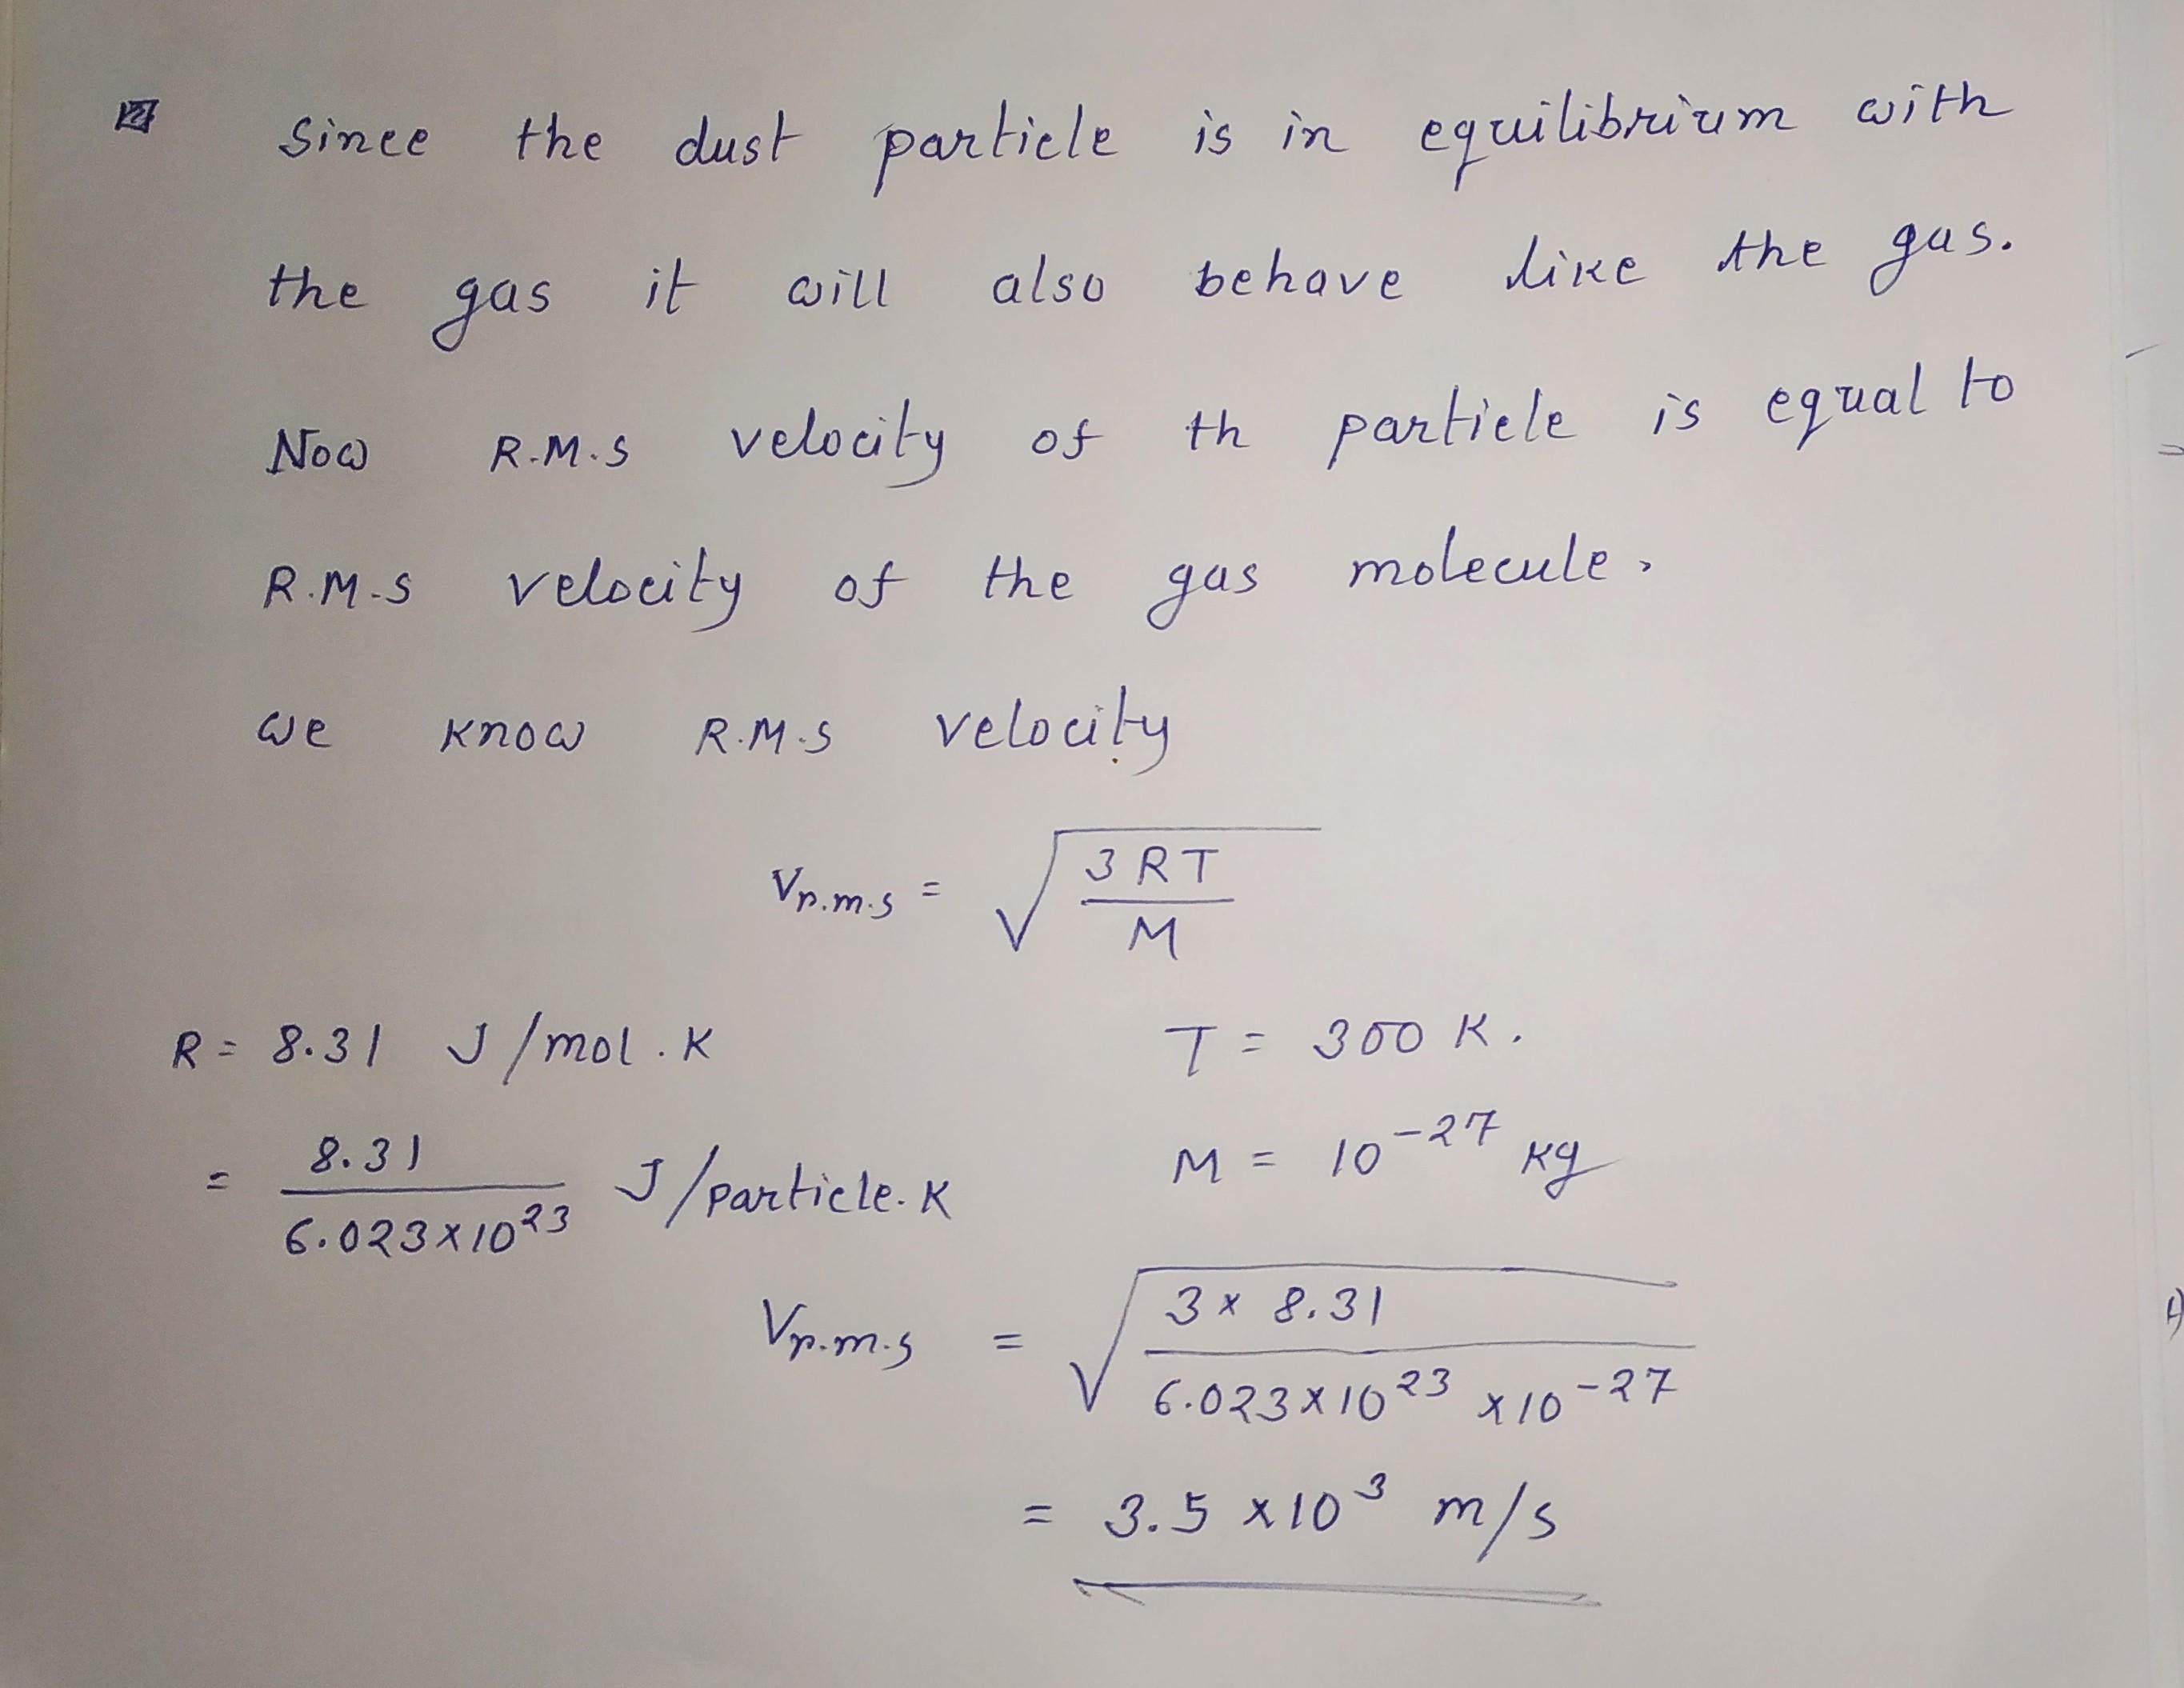 Since the dust particle is in equilibrium with
the gas it will also behave like the gas.
Now R.M.S velocity of th particle is equal to
R.M.S velocity of the gas molecule.
we know R.M.S velocity
Vr.m.s = √(3RT/M)
R = 8.31 J/mol.K T = 300 K.
= 8.31/6.023×10²³ J/particle.K M = 10⁻²⁷ kg
Vr.m.s = √(3×8.31/6.023×10²³×10⁻²⁷)
= 3.5×10³ m/s